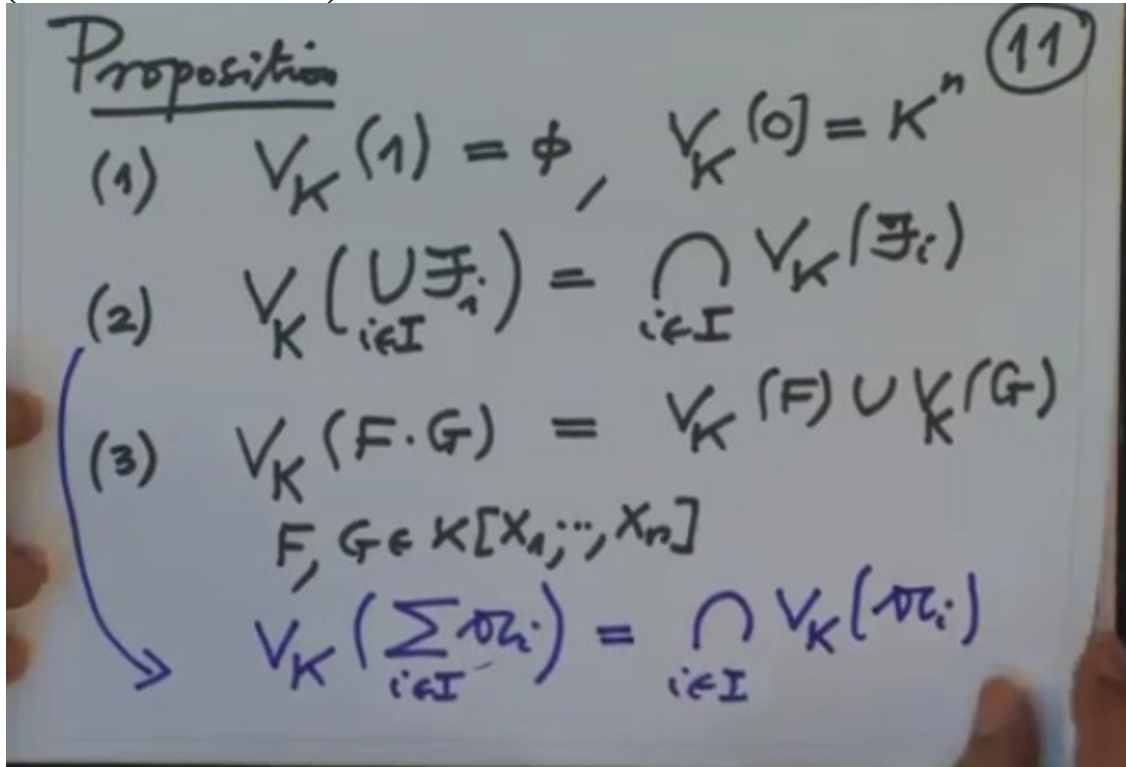 Proposition (11)
(1) V_K (1) = ϕ, V_K (0] = K^n
(2) V_K ( ∪_{i∈I} 𝔉_i ) = ∩_{i∈I} V_K (𝔉_i)
(3) V_K (F·G) = V_K (F) ∪ V_K (G)
F, G ∈ K[X_1, ..., X_n]
V_K ( ∑_{i∈I} 𝔞_i ) = ∩_{i∈I} V_K (𝔞_i)